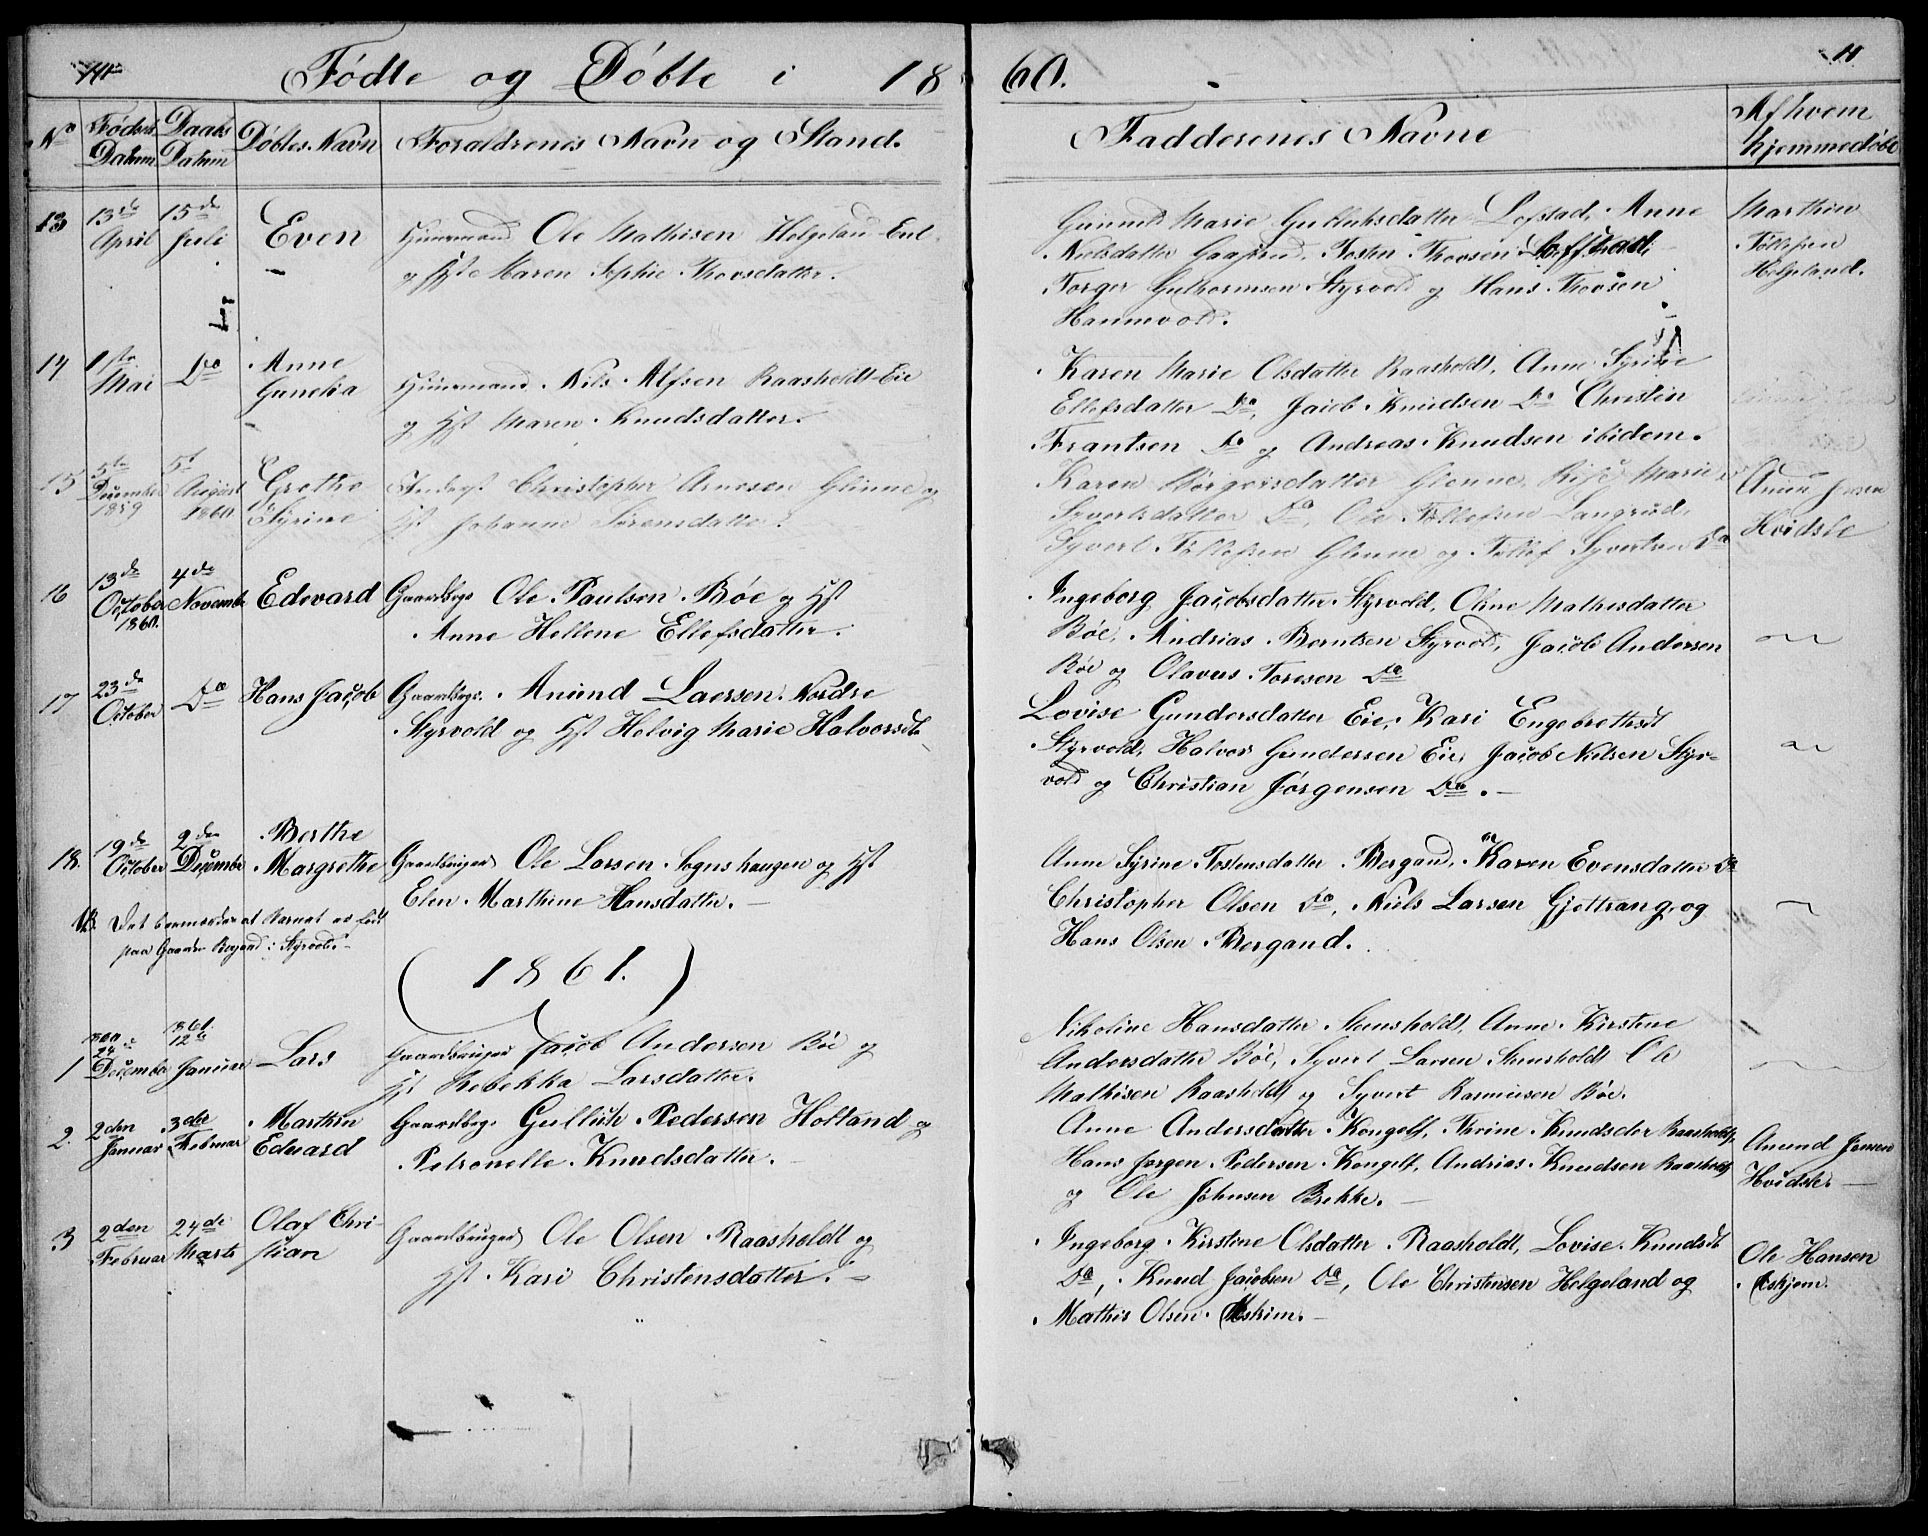 Fødte og Døbte i 1860.
11
No
Fødsels Datum
Daabs Datum
Døbtes Navn
Forældrenes Navn og Stand.
Faddernes Navne
Af hvem hjemmedøbt
13
13de April
15de Juli
Even
Huusmand Ole Mathisen Helgeland Eie
og Hst Maren Sophie Thovsdatter.
Marie Gulliksdatter Lofstad, Anne
Nielsdatter Gaaserud, Tosten Thovsen
Torger Guthormsen Styrvold og Hans Thovsen
Hannevold.
Marthin
Tollefsen
Helgeland.
14
1ste Mai
Do
Anne
Gunelia
Huusmand Nils Alfsen Raasholdt Eie
og Hst Maren Knudsdatter.
Karen Marie Olsdatter Raasholdt, Anne Syrine
Ellefsdatter Do, Jacob Knudsen Do Christen
Frantsen Do og Andreas Knudsen ibidem.
15
5te December 1859
5te August 1860
Grethe
Syrine
Inderst Christopher Arnesen Glenne og
Hst Johanne Sørensdatter.
Karen Børgersdatter Glenne, Marie
Syvertsdatter Do, Ole Tollefsen Langrud,
Syvert Tollefsen Glenne og Tollef Syvertsen Do
Anun Jensen
Hvidste
16
13de October 1860.
4de Novembr
Edevard
Gaardbrgr Ole Paulsen Bøe og Hst
Anne Hellene Ellefsdatter.
Ingeborg Jacobsdatter Styrvold, Oline Mathisdatter
Bøe, Andrias Berntsen Styrvold, Jacob Andersen
Bøe og Olavus Toresen Do
17
23de October
Do
Hans Jacob
Gaardbrgr. Anund Laersen Nordre
Styrvold og Hst Helvig Marie Halvorsdt
Lovise Gundersdatter Eie, Kari Engebrethsdt
Styrvold, Halvor Gundersen Eie, Jacob Nielsen Styr-
vold og Christian Jørgensen Do. —
18.
19de October
2den Decembr
Berthe
Margrethe
Gaardbruger Ole Larsen Sognshaugen og Hst
Elen Marthine Hansdatter. —
Anne Syrine Tostensdatter Bergand, Karen Evensdatter Do
Christopher Olsen Do, Niels Larsen Gjettrang og
Hans Olsen Bergand.
NB. Det bemærkes at Barnet er født
paa Gaarden Bergand i Styrvold. —
(1861.)
1
1860 24de December
1861. 12te Januar
Lars
Gaardbruger Jacob Andersen Bøe og
Hst Rebekka Larsdatter.
Nikoline Hansdatter Steensholdt, Anne Kirstine
Andersdatter Bøe, Syvert Larsen Steensholdt Ole
Mathisen Raasholdt og Syvert Rasmusen Bøe.
2.
2den Januar
3die Februar
Marthin
Eduard
Gaardbrg. Gulluk Pedersen Holland og
Petronelle Knudsdatter. —
Anne Andersdatter Kongelf, Thrine Knudsdtr Raasholdt,
Hans Jørgen Pedersen Kongelf, Andrias Knudsen Raasholdt
og Ole Johnsen Bekke. —
Anund Jensen
Hvidste. —
3
2den Februar
24de Marts
Olaf Chri-
stian
Gaardbruger Ole Olsen Raasholdt og
Hst Kari Christensdatter. —
Ingeborg Kirstine Olsdatter Raasholdt, Lovise Knudsdt
Do, Knud Jacobsen Do, Ole Christensen Helgeland og
Mathis Olsen Askim. —
Ole Hansen
Askjem.